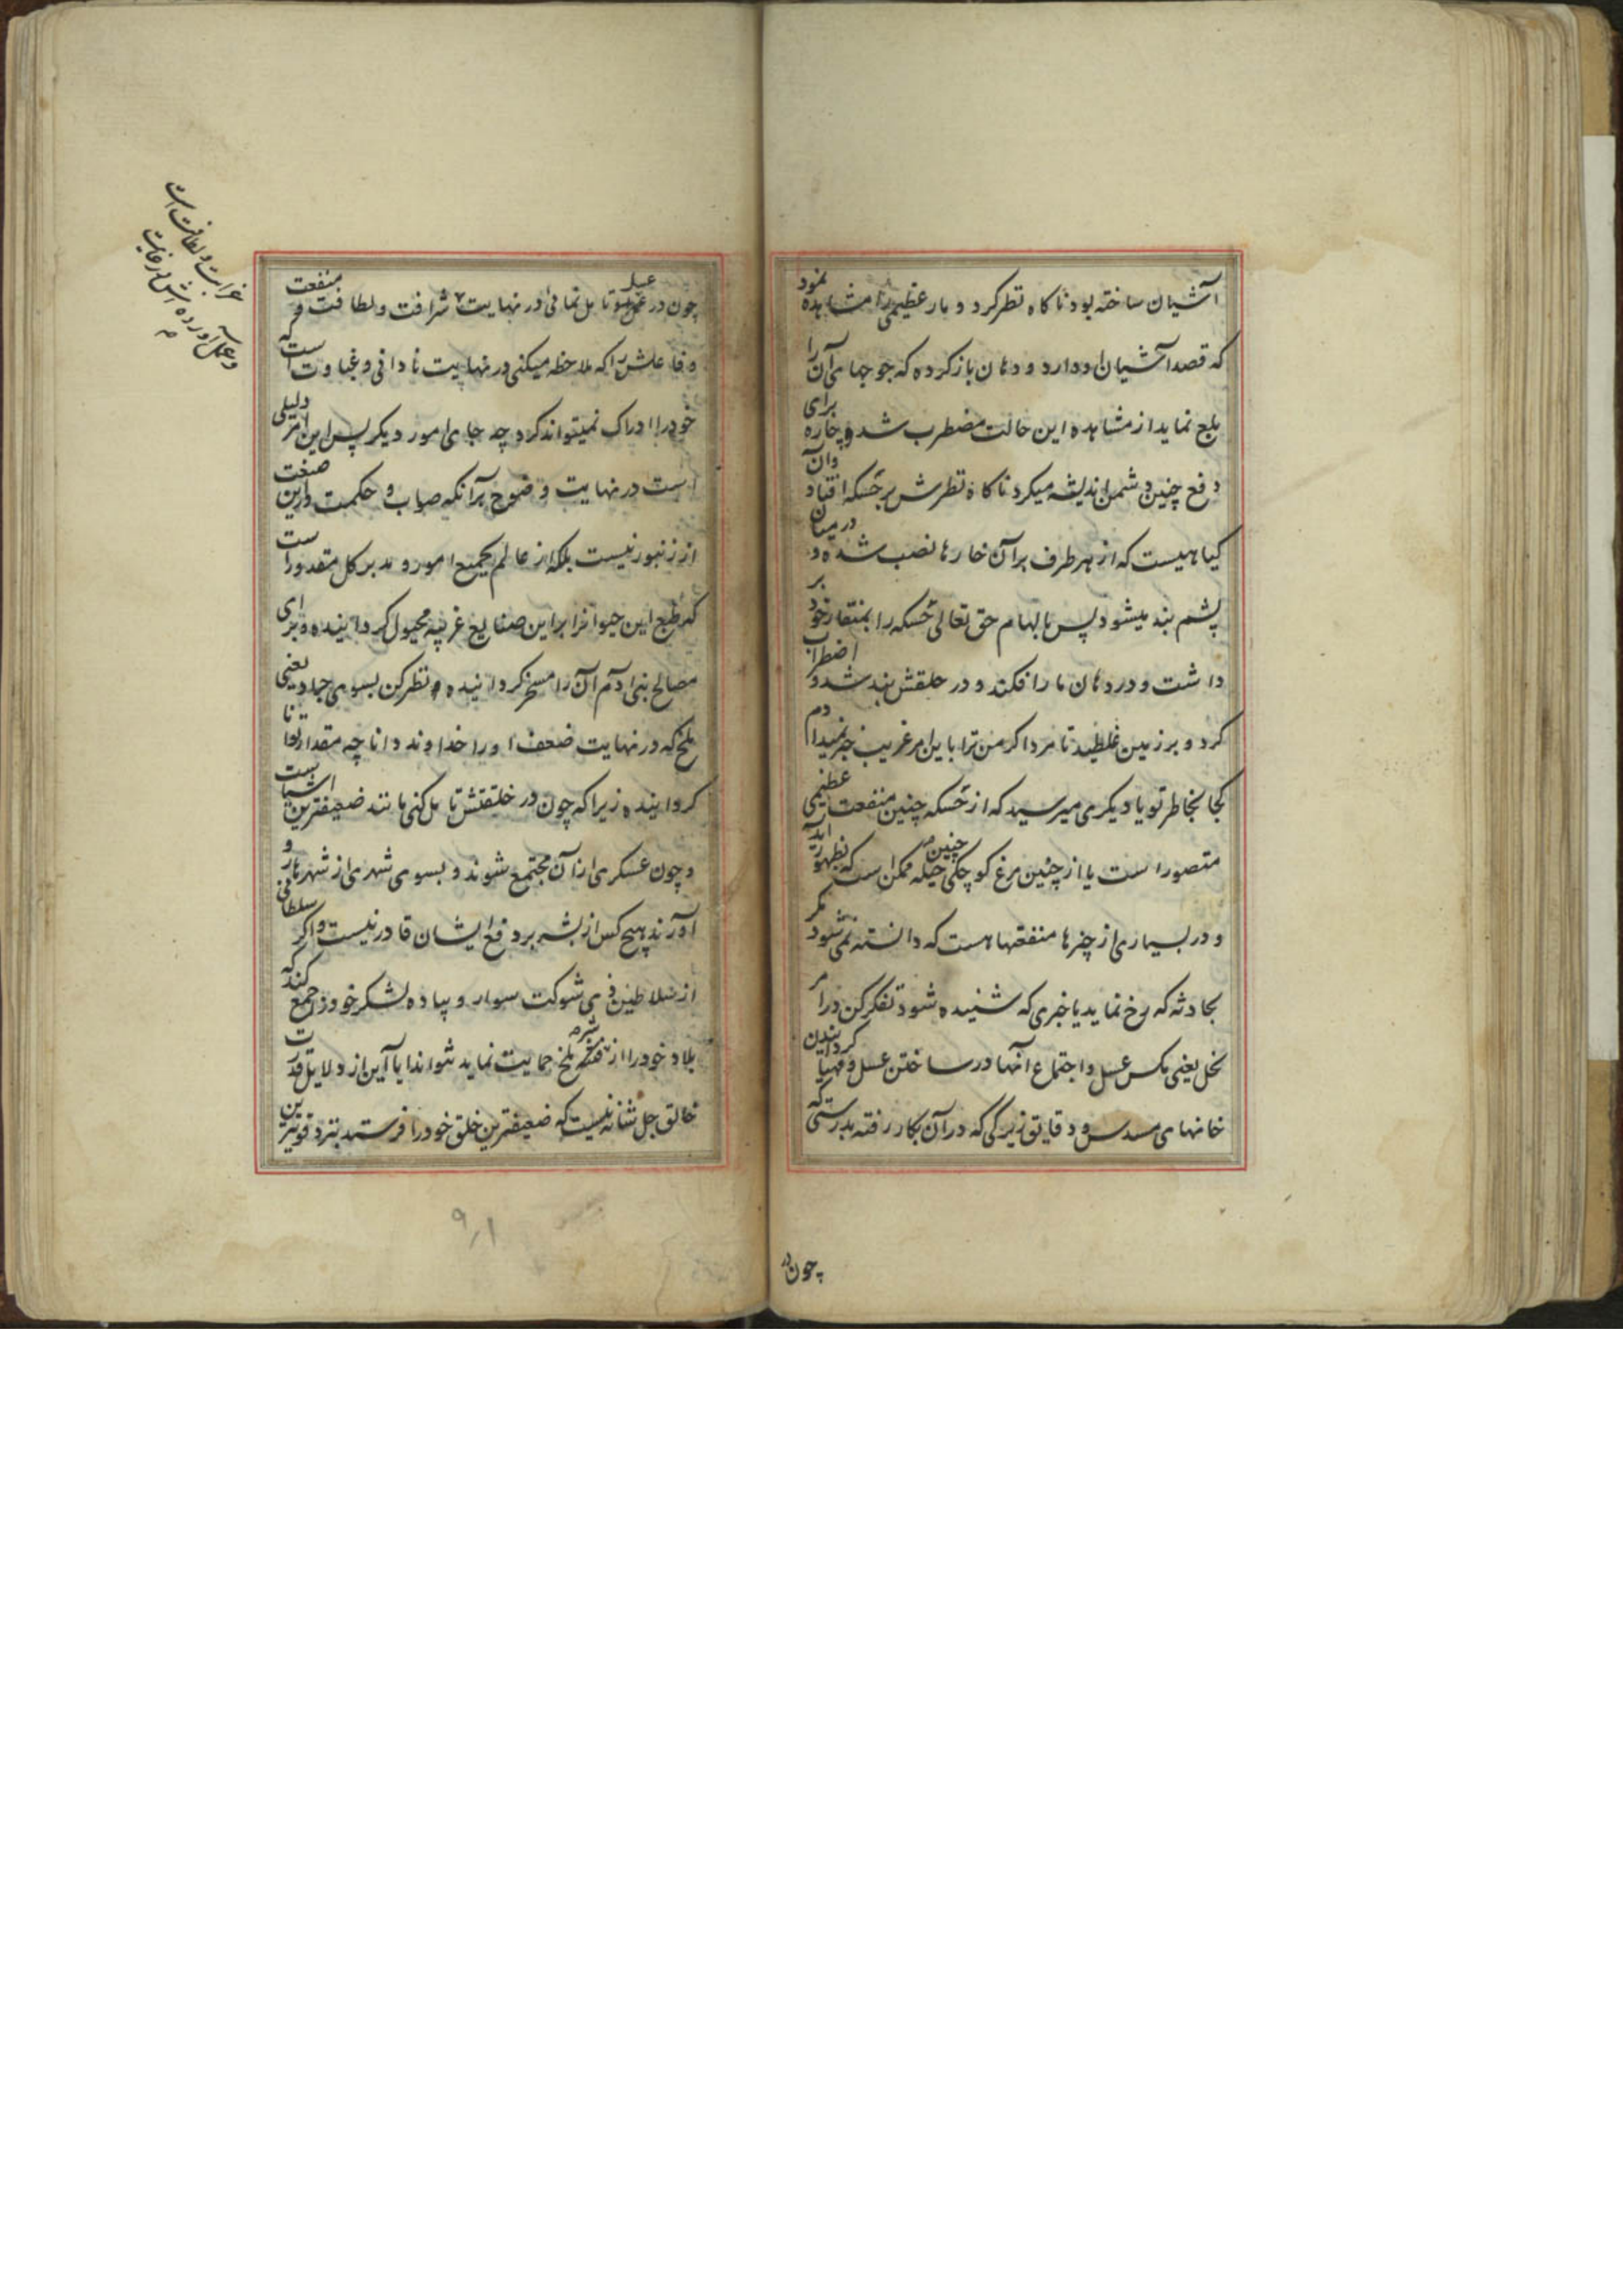 آشیان ساخته بود ناکاه نظر کرد و مار عظیمی را مشاهده نمود
که قصد آشیان او دارد و دهان باز کرده که جوجهای آن را
بلع نماید از مشاهده این حالت مضطرب شد و چاره برای
دفع چنین دشمن اندیشه میکرد ناکاه نظرش بر خسکه افتاد وآن
کیاهیست که از هر طرف بر آن خارها نصب شده و در میان
پشم بند میشود پس بالهام حق تعالی خسکه را بمنقار خود بر
داشت و در دهان مار افکند و در حلقش بند شد و اضطراب
کرد و بر زمین غلطید تا مرد اکر من ترا باین امر غریب خبر نمیدادم
کجا بخاطر تو یا دیکری میرسید که از خسکه چنین منفعت عظیمی
متصور است یا از چنین مرغ کوچکی چنین حیله ممکن است که بظهور آید
و در بسیاری از چیزها منفعتها هست که دانسته نمی شود مکر
بحادثه که رخ نماید یا خبری که شنیده شود تفکر کن در امر
نحل یعنی مکس عسل و اجتماع آنها در ساختن عسل و مهیا کردانیدن
خانهای مسدس و دقایق زیرکی که در آن بکار رفته بدرستی که
چون در
چون در عمل او تامل نمائی در نهایت شرافت ولطافت و منفعت
عسل
غرابت و لطافت است
و عمل آورده اش در غایت
م
و فاعلش را که ملاحظه میکنی در نهایت نادانی و غباوت است که
خود را ادراک نمیتواند کرد چه جای امور دیکر پس این امر دلیلی
است در نهایت وضوح بر آنکه صواب و حکمت در این صنعت
از زنبور نیست بلکه از عالم بجمیع امور و مدبر کل مقدور است
که طبع این حیوانرا بر این صنایع غریبه مجبول کردانیده و برای
مصالح بنی آدم آن را مسخر کردانیده و نظر کن بسوی جراد یعنی
ملخ که در نهایت ضعف او را خداوند دانا چه مقدار توانا
کردانیده زیرا که چون در خلقتش تامل کنی مانند ضعیفترین اشیاست
و چون عسکری از آن مجتمع شوند و بسوی شهری از شهرها رو
آورند هیچ کس از بشر بر دفع ایشان قادر نیست و اکر سلطانی
از سلاطین ذی شوکت سوار و پیاده لشکر خود را جمع کند که
بلاد خود را از شر ملخ حمایت نماید نتواند ایا این از دلایل قدرت
خالق جل شانه نیست که ضعیفترین خلق خود را فرستد بنزد قویترین
۹۱